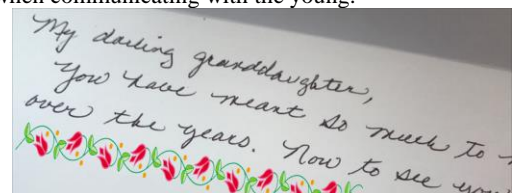 when communicating with the young.
My darling granddaughter,
You have meant so much to
over the years. Now to see you